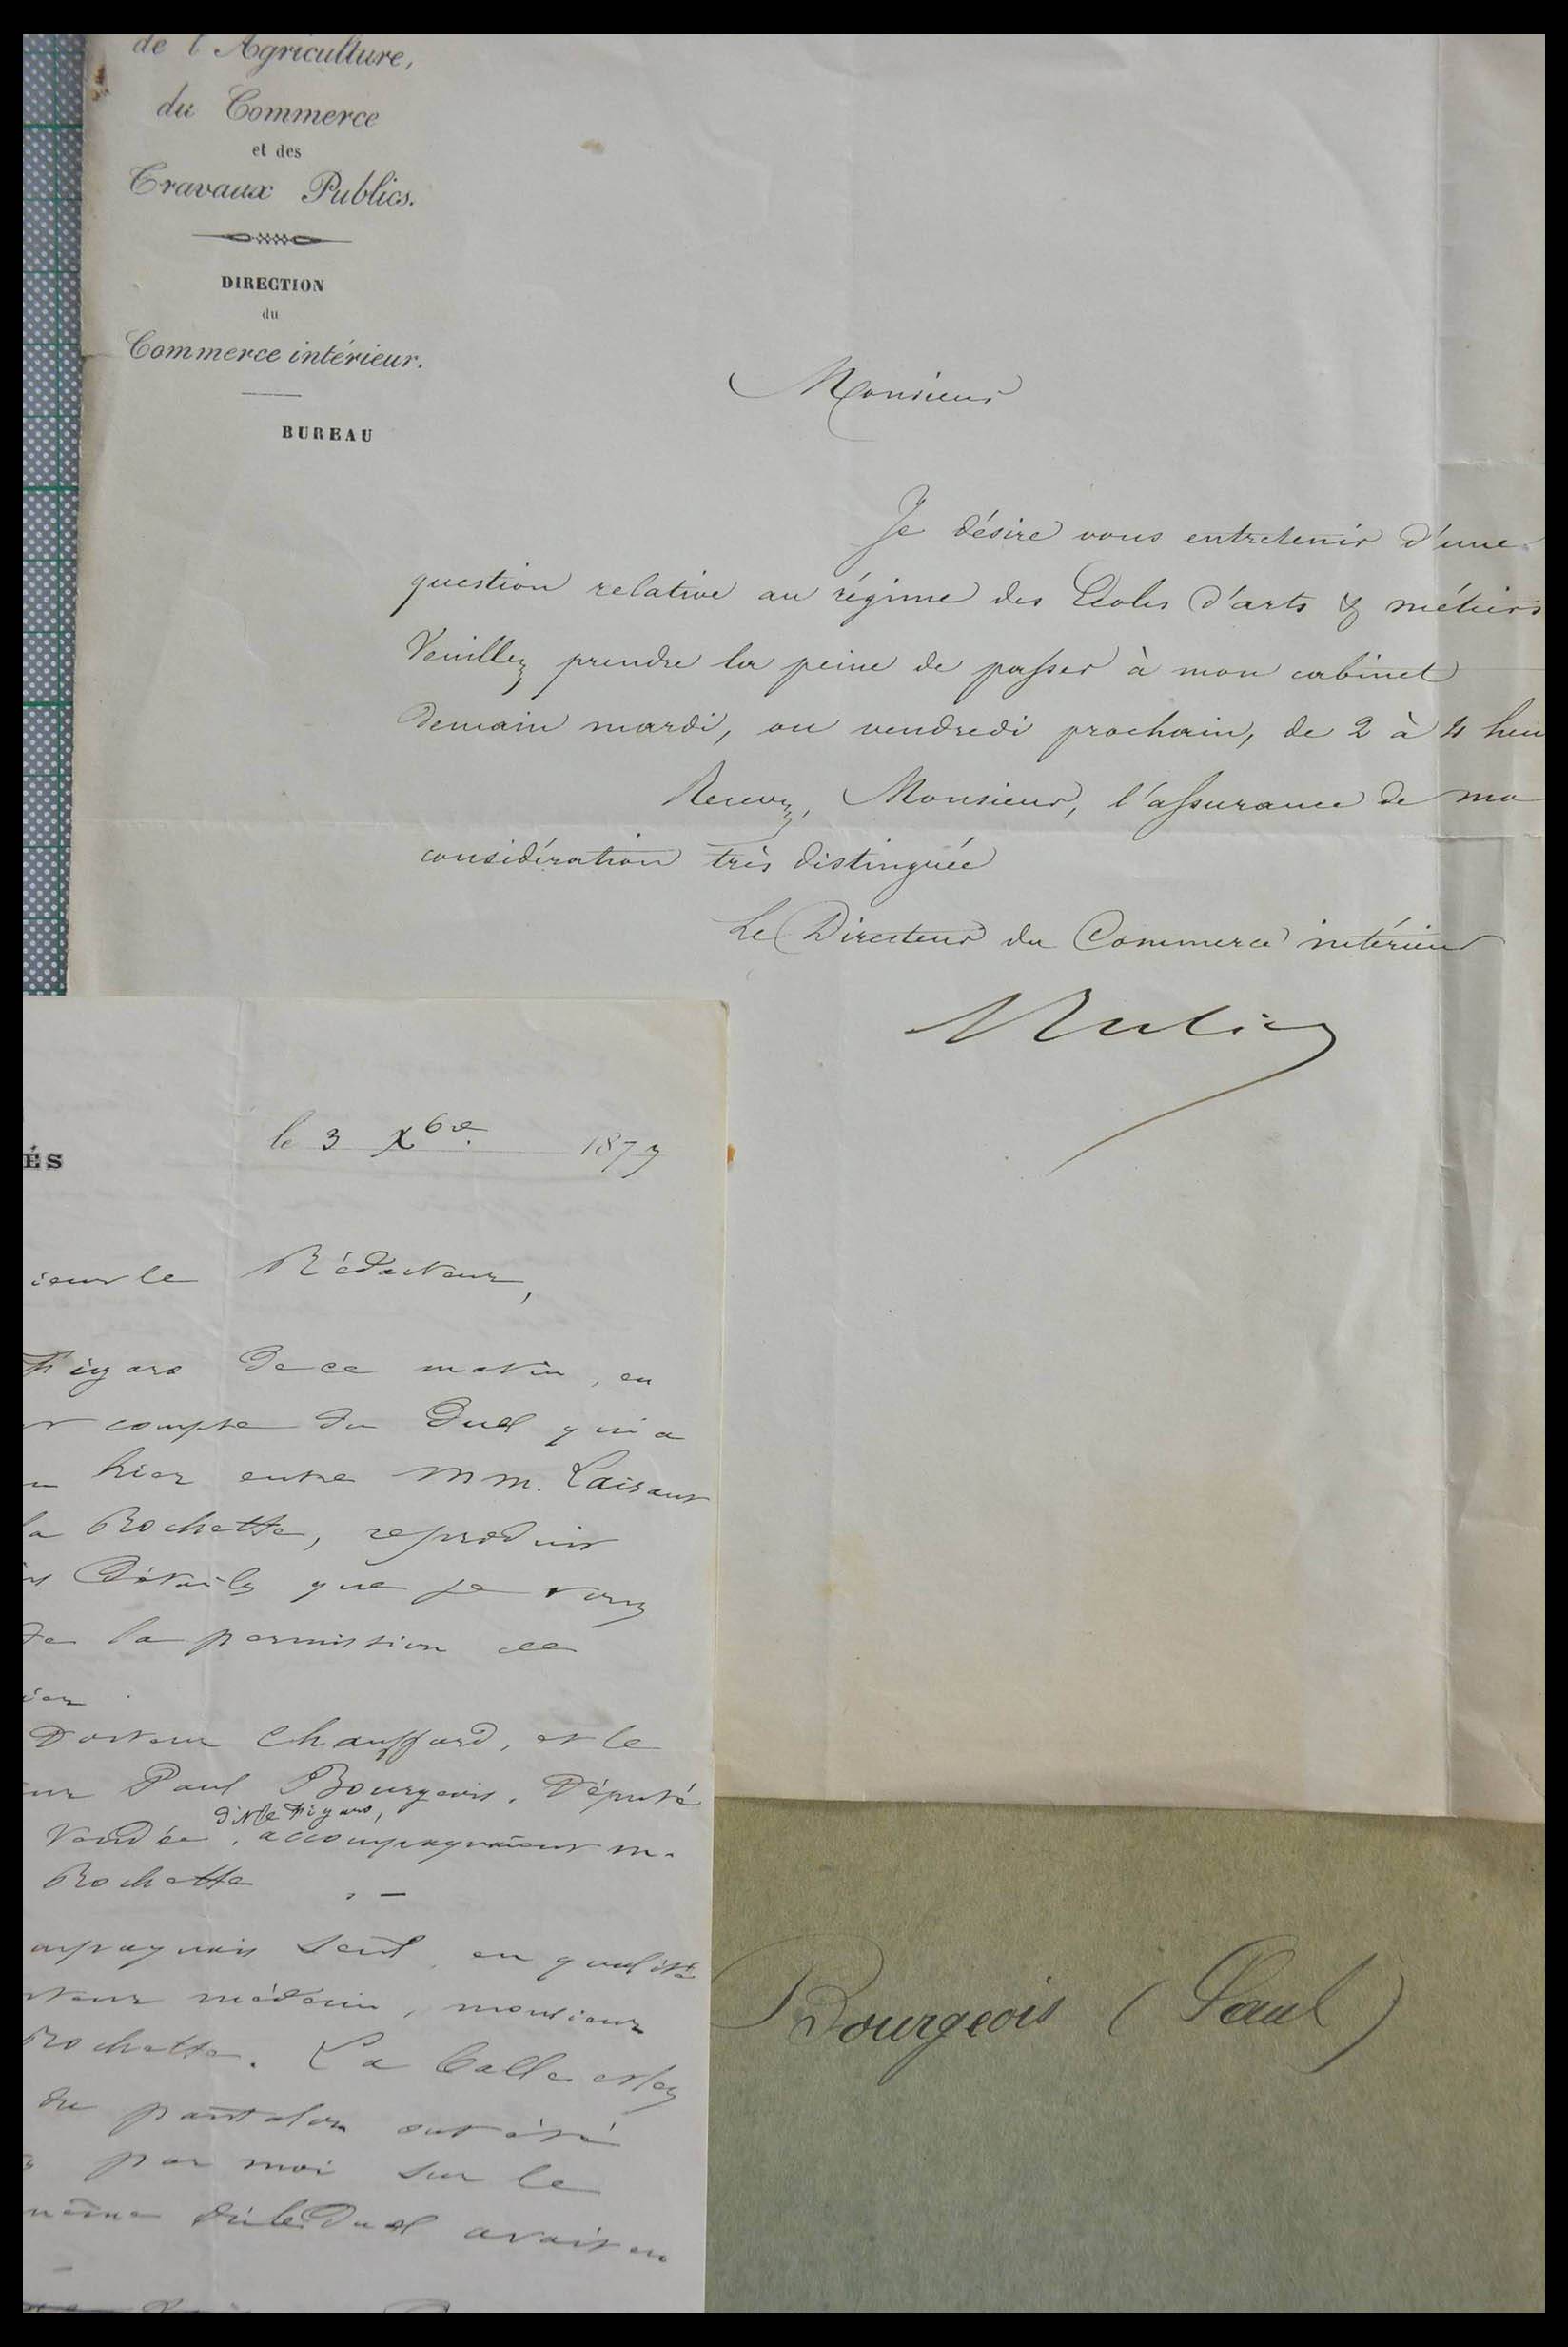 de l'Agriculture,
du Commerce
et des
Travaux Publics.
DIRECTION
du
Commerce intérieur.
BUREAU
Monsieur
Je désire vous entretenir d'une
question relative au régime des Ecoles d'arts & métiers
Veuillez prendre la peine de passer à mon cabinet
demain mardi, ou vendredi prochain, de 2 à 4 heu
Recevez, Monsieur, l'assurance de ma
considération très distinguée
Le Directeur du Commerce intérieur
ÉS
le 3 Xbre 1877
ieur le Rédacteur,
Figaro de ce matin, en
compte du duel qui a
hier entre MM. Laisant
la Rochette, reproduit
détails que je vous
la permission de
Docteur Chauffard, et le
Paul Bourgeois, Député
dit le Figaro,
Vendée, accompagnaient M.
Rochette . —
ompagnais seul, en qualité
médecin, monsieur
Rochette. La balle et les
du pantalon ont été
par moi sur le
même où le Duel avait eu
Bourgeois (Paul)